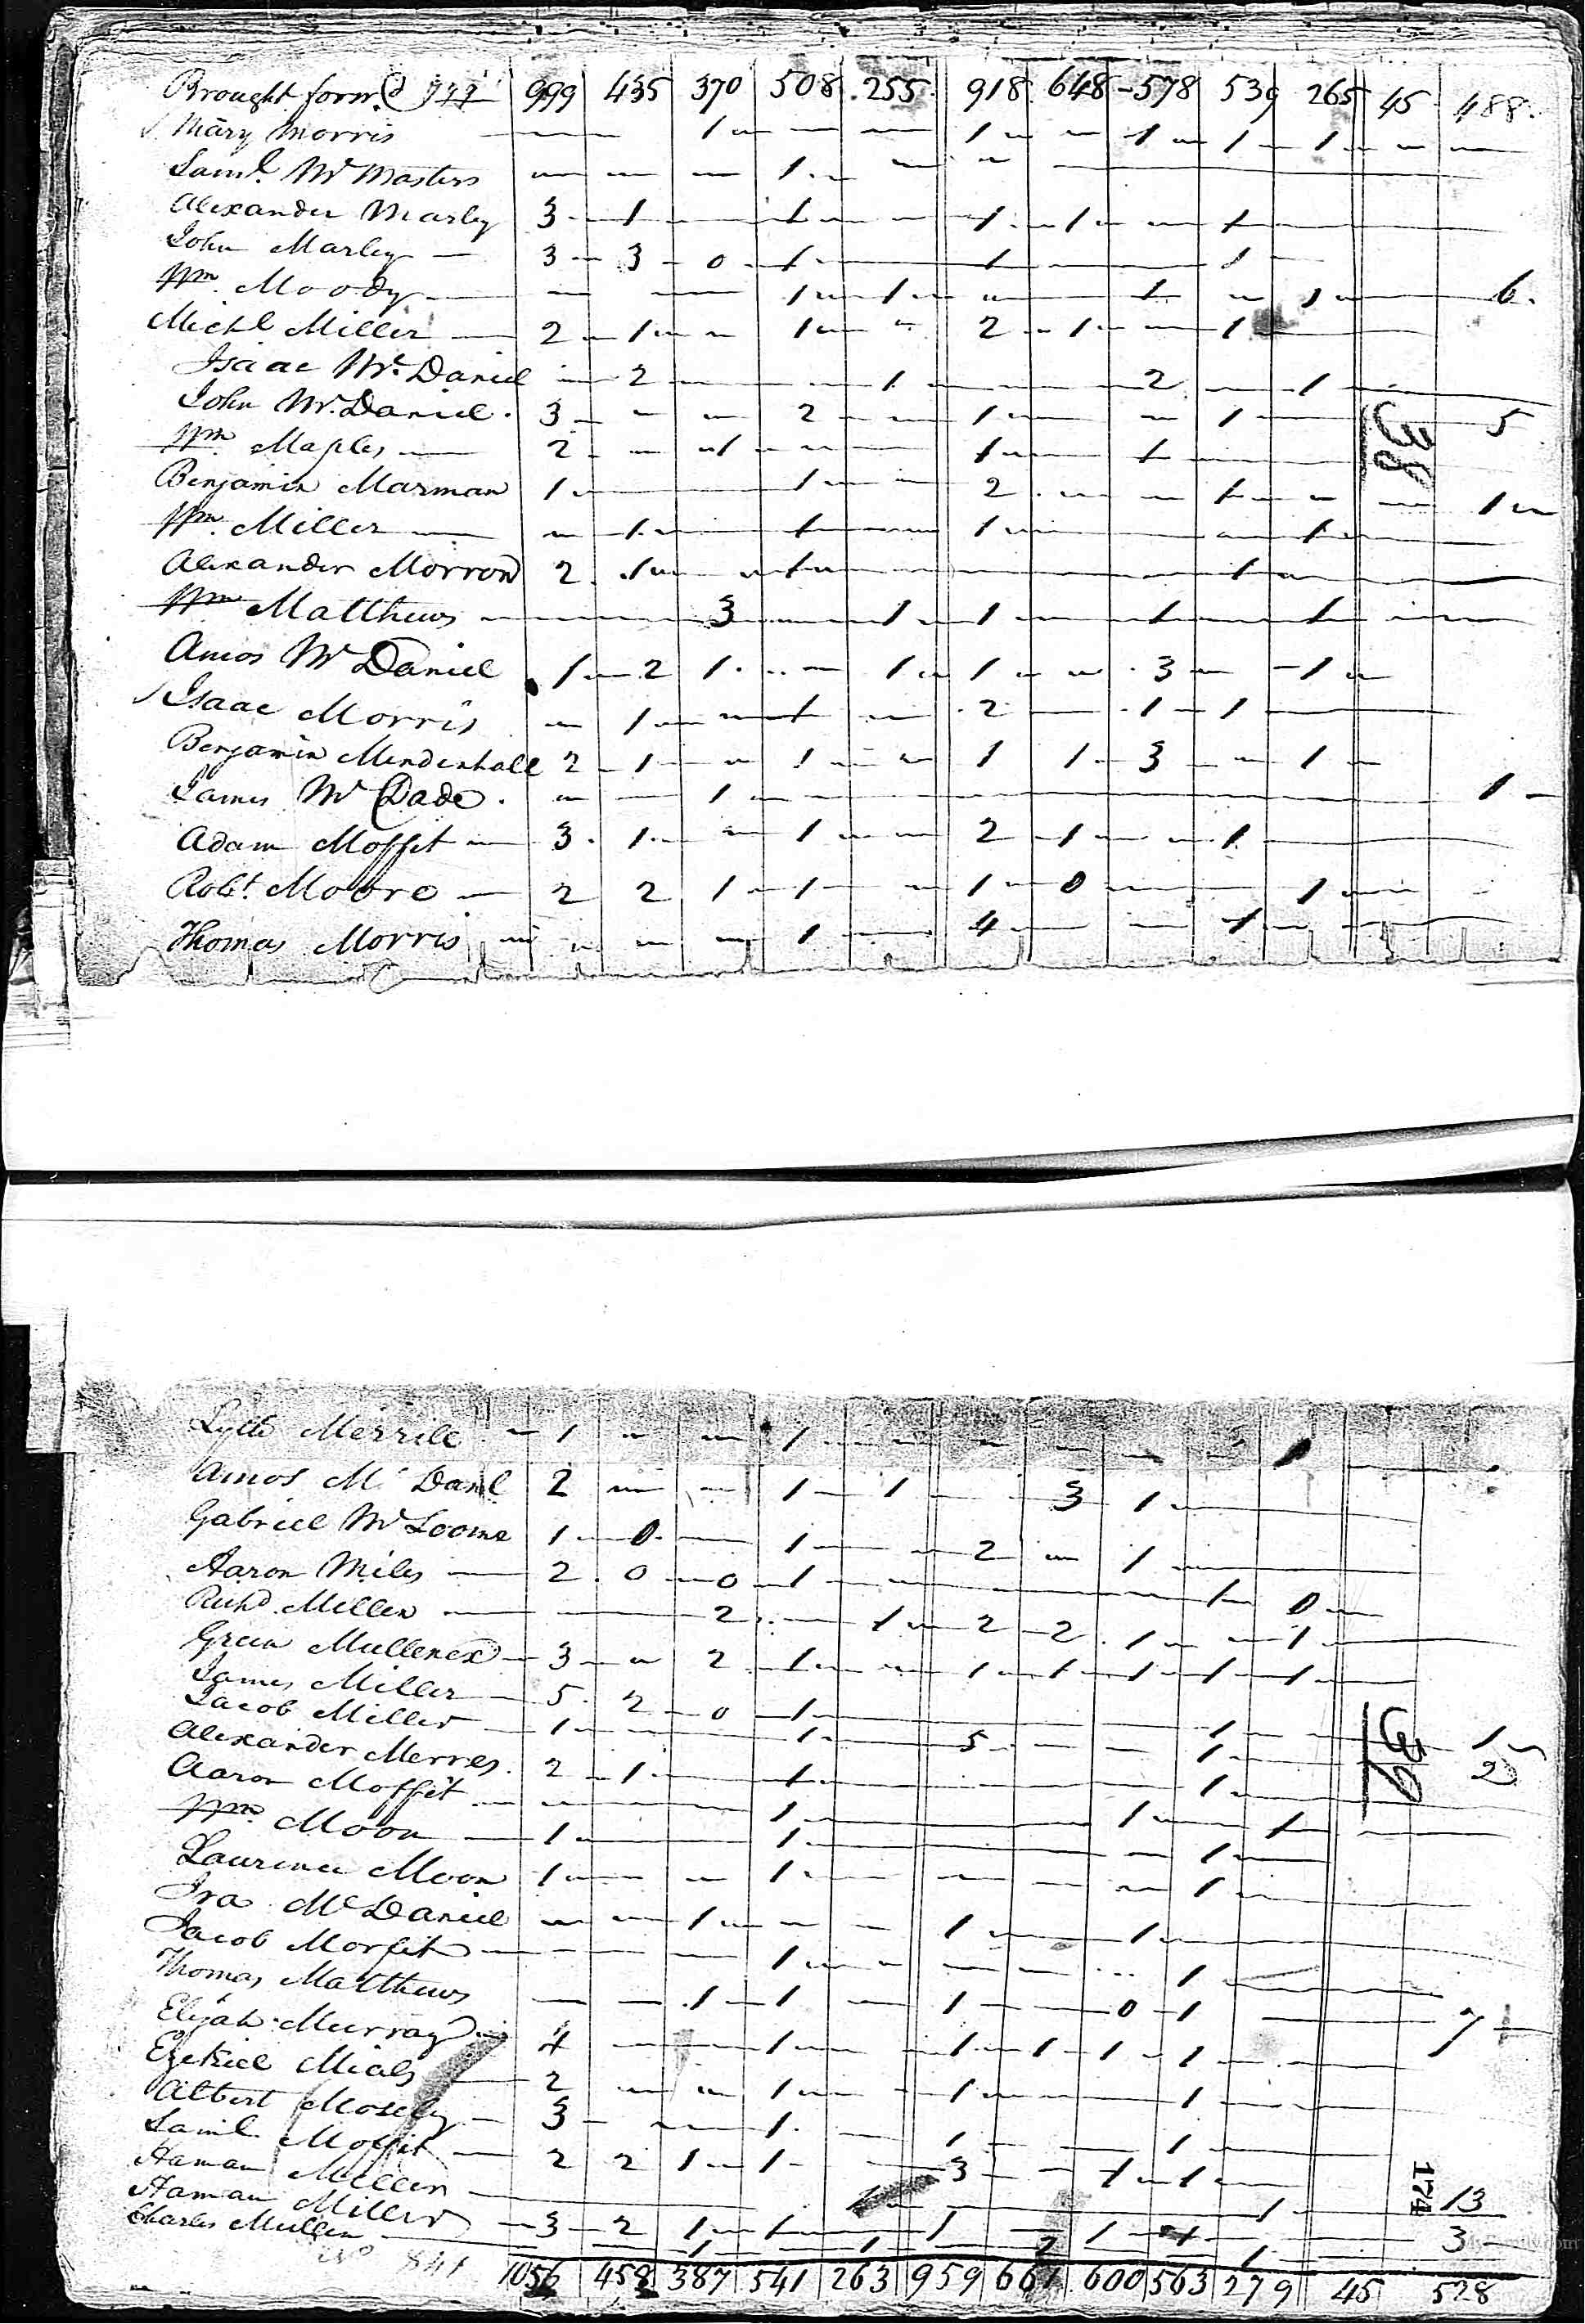 Brought forwd 999 435 370 508 255 918 648 578 539 265 45 488
Mary Morris — — 1 — — 1 — 1 1 1 — —
Saml. Mc Masters — — — 1 — —
Alexander Marley 3 1 — 1 — 1 1 — 1
John Marley 3 3 0 1 — 1 — 1
Wm. Moody — — 1 1 — 1 — 1 — 6
Michl Miller 2 1 — 1 — 2 1 — 1
Isaac Mc. Daniel — 2 — 1 — 2 — 1
John Mc. Daniel 3 — — 2 — 1 — 1 — 5
38
Wm. Maples 2 — 1 — 1 — 1
Benjamin Marman 1 — 1 — 2 — 1 — 1
Wm. Miller — 1 — 1 — 1 — 1
Alexander Morrow 2 1 — 1 — 1
Wm Matthews — 3 — 1 1 — 1 — 1
Amos Mc Daniel 1 2 1 — 1 1 — 3 — 1
Isaac Morris — 1 — 1 — 2 — 1 1
Benjamin Mendenhall 2 1 — 1 — 1 1 3 — 1
James Mc Dade — — 1 — 1
Adam Moffet 3 1 — 1 — 2 1 — 1
Robt. Moore 2 2 1 1 — 1 0 — 1
Thomas Morris — — — 1 — 4 — 1
Merrill 1 — — 1 — — — — — 1
Amos Mc Danl 2 — — 1 1 — 3 1
Gabriel Mc 1 0 — 1 — 2 — 1
Aaron Miles 2 0 0 1 — 1 0
Richd. Miller — 2 — 1 2 2 1 — 1
Green Mullenex 3 — 2 1 — 1 1 1 1 1
James Miller 5 2 0 1 — 1 — 1
Jacob Miller 1 — 1 — 5 — 1 — 2
39
Alexander Merres 2 1 — 1 — 1
Aaron Moffit — 1 — 1 — 1
Wm. Moon 1 — 1 — 1
Laurence Moon 1 — — 1 — — — — 1
Ira Mc Daniel — — 1 — — 1 — 1
Jacob Morfit — — — 1 — — 1
Thomas Matthews — — 1 1 — 1 — 0 1 — 7
Elijah Murray 4 — 1 — 1 1 1 1
Ezekiel 2 — — 1 — 1 — 1
Albert Mosely 3 — — 1 — 1 — 1
Saml. Moffit 2 2 1 1 — 3 — 1 1
Haman Miller — 1 — 1 — 13
174
Haman Miller 3 2 1 1 — 1 — 1 1 — 3
Charles Mullen — 1 — 1 — 2 — 1
No 841 1056 458 387 541 263 959 661 600 563 279 45 528